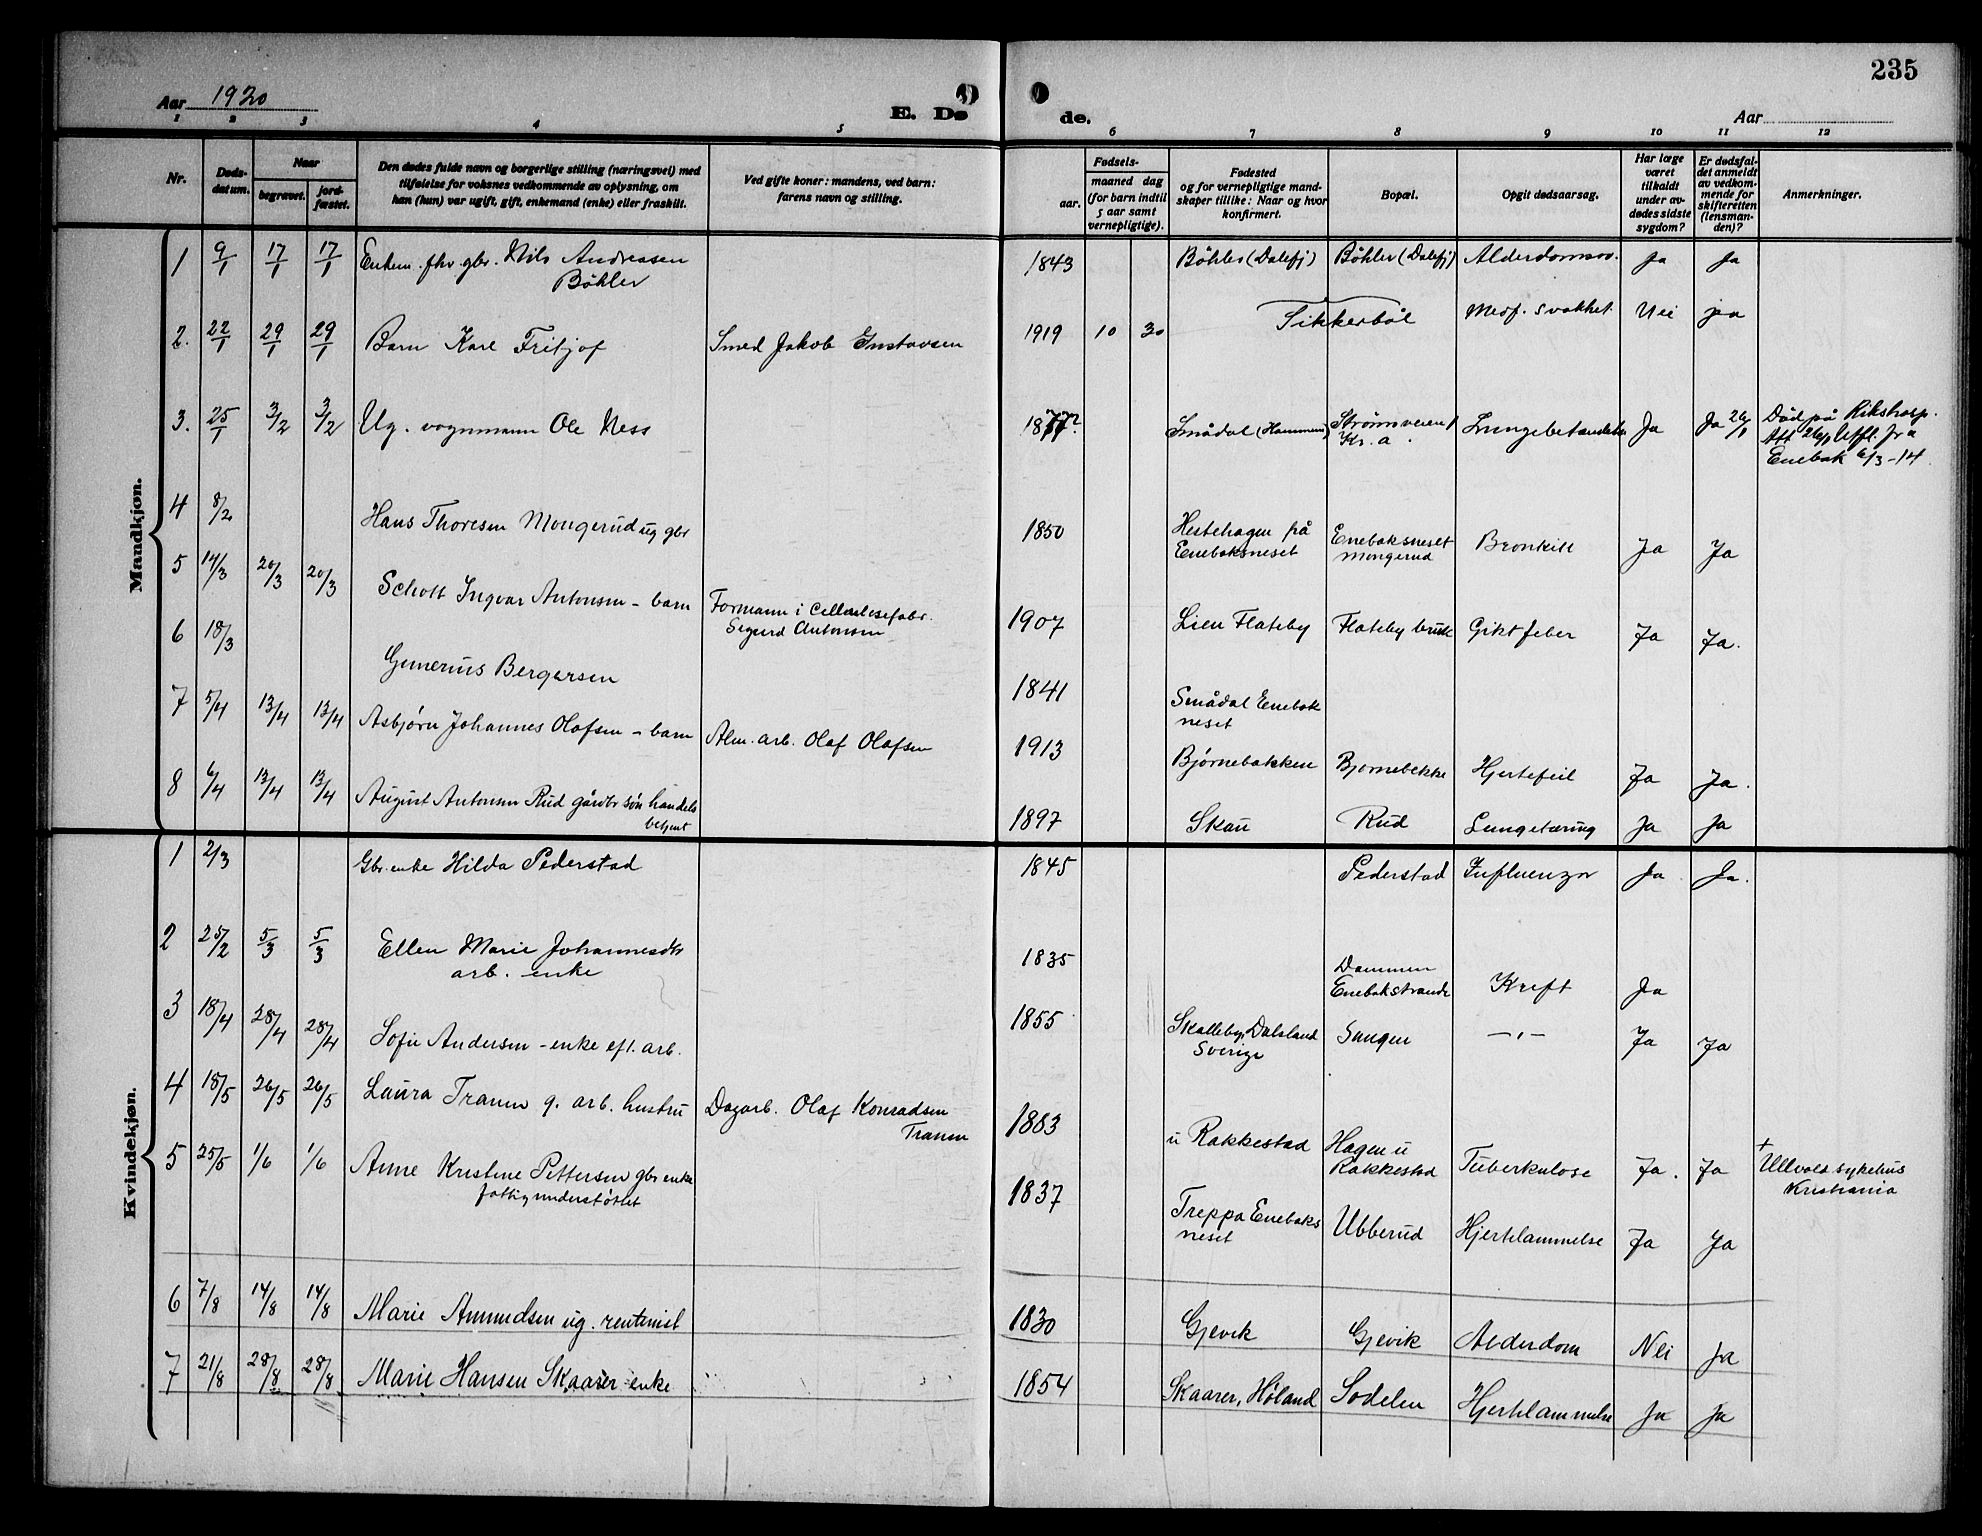 235
Aar 1920
E. Dø
de.
Aar
1 2 3 4 5 6 7 8 9 10 11 12
Nr.
Døds-datum.
Naar
begravet.
jord-fæstet.
Den dødes fulde navn og borgerlige stilling (næringsvei) med
tilføielse for voksnes vedkommende av oplysning, om
han (hun) var ugift, gift, enkemand (enke) eller fraskilt.
Ved gifte koner: mandens, ved barn:
farens navn og stilling.
Fødsels-
aar.
maaned dag
(for barn indtil
5 aar samt
vernepligtige).
Fødested
og for vernepligtige mand-
skaper tillike: Naar og hvor
konfirmert.
Bopæl.
Opgit dødsaarsag.
Har læge
været
tilkaldt
under av-
dødes sidste
sygdom?
Er dødsfal-
det anmeldt
av vedkom-
mende for
skifteretten
(lensman-
den)?
Anmerkninger.
Mandkjøn.
1 9/1 17/1 17/1 Enkem. fhv. gbr. Nils Andreasen 1843 Bøhler (Dalefj) Bøhler (Dalefj) Ja Ja
Bøhler
2. 22/1 29/1 29/1 Barn Karl Fritjof Smed Jakob Gustavsen 1919 10 30 Tikkerbøl Medf. svakhet Nei ja
3. 25/1 3/2 3/2 Ug. vognmann Ole Ness 1877? Smådal (Hammeren) Strømsveien Lungebetændelse Ja Ja 26/1 Død på Rikshosp.
Kr.a. Att 26/1 Utfl. fra
Enebak 6/3-14
4 8/2 Hans Thoresen Mongerud ug gbr 1850 Hestehagen på Enebaksneset Bronkitt Ja Ja
Enebaksneset Mongerud
5 14/3 20/3 20/3 Schott Ingvar Antonsen - barn Formann i Cellulosefabr. 1907 Lien Flateby Flateby bruk Giktfeber Ja Ja.
Sigurd Antonsen
6 18/3 Gunerius Bergersen 1841 Smådal Enebak
neset
7 5/4 13/4 13/4 Asbjørn Johannes Olafsen - barn Alm. arb. Olaf Olafsen 1913 Bjørnebakken Bjørnebekke Hjertefeil Ja Ja.
8 6/4 13/4 13/4 August Antonsen Rud gårdbr søn handels 1897 Skau Rud Lungetæring Ja Ja
betjent
Kvindekjøn.
1 2/3 Gbr. enke Hilda Pederstad 1845 Pederstad Influenza Ja Ja.
2 25/2 5/3 5/3 Ellen Marie Johannesdtr 1835 Dammen Kreft Ja
arb. enke Enebakstrande
3 18/4 28/4 28/4 Sofie Andersen - enke eft. arb. 1855 Skalleby, Dalsland Sangen -"- Ja Ja
Sverige
4 18/5 26/5 26/5 Laura Tranen g. arb. hustru Dagarb. Olaf Konradsen 1883 u Rakkestad Hagen u Tuberkulose Ja. Ja + Ullvold sykehus
Tranen Rakkestad Kristiania
5 25/5 1/6 1/6 Anne Kristine Pettersen gbr enke 1837 Treppa Enebaks Ubberud Hjertelammelse Ja Ja
fattigunderstøttet neset
6 7/8 14/8 14/8 Marie Amundsen ug. rentenist 1830 Gjevik Gjevik Alderdom Nei Ja
7 21/8 28/8 28/8 Marie Hansen Skaarer enke 1854 Skaarer, Høland Sodelen Hjertelammelse Ja Ja